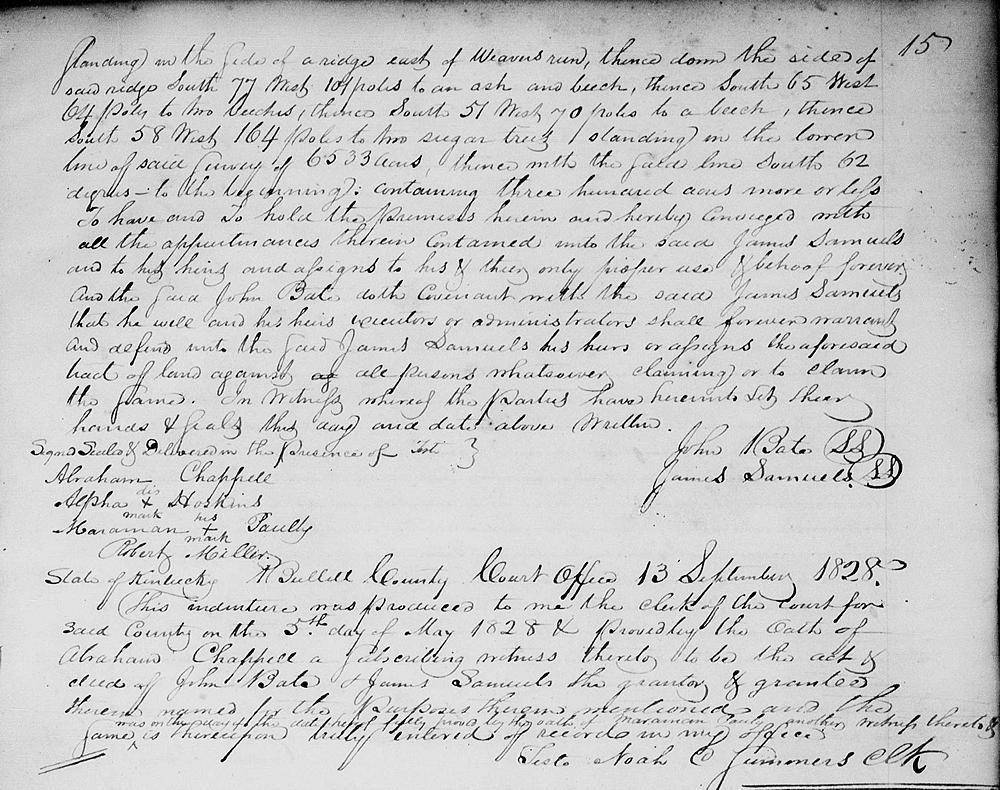 15
standing in the side of a ridge east of Weavers run, thence down the side of
said ridge South 77 West 104 poles to an ash and beech, thence South 65 West
64 poles to two beeches, thence South 51 West 70 poles to a beech, thence
South 58 West 164 poles to two sugar trees standing in the lower
line of said Survey of 6533 acres, thence with the said line South 62
degrees - to the beginning: containing three hundred acres more or less
To have and To hold the premises herein and hereby Conveyed with
all the appurtinances therein Contained unto the said James Samuels
and to his heirs and assigns to his & their only proper use & behoof forever
And the said John Bate doth Covenant with the said James Samuels
that he will and his heirs executors or administrators shall forever warrant
and defend unto the said James Samuels his heirs or assigns the aforesaid
tract of land against all persons whatsoever claiming or to claim
the same. In Witness whereof the Parties have hereunto set their
hands & seals this day and date above Written.
Signed Sealed & Delivered in the presence of Test }
John Bate SS
James Samuels SS
Abraham Chappell
Alpha his + mark Hoskins
Maraman his + mark Pauly
Robert Miller
State of Kentucky Bullitt County Court Office 13 September 1828.
This indenture was produced to me the clerk of the Court for
said County on the 5th day of May 1828 & proved by the Oath of
Abraham Chappell a subscribing witness thereto to be the act &
deed of John Bate & James Samuels the grantor & grantee
therein named for the purposes therein mentioned and the
was on the day of the date hereof fully proved by the oath of Maraman Pauly another witness thereto &
same is thereupon truly entered of record in my office
Teste Noah C Summers Clk